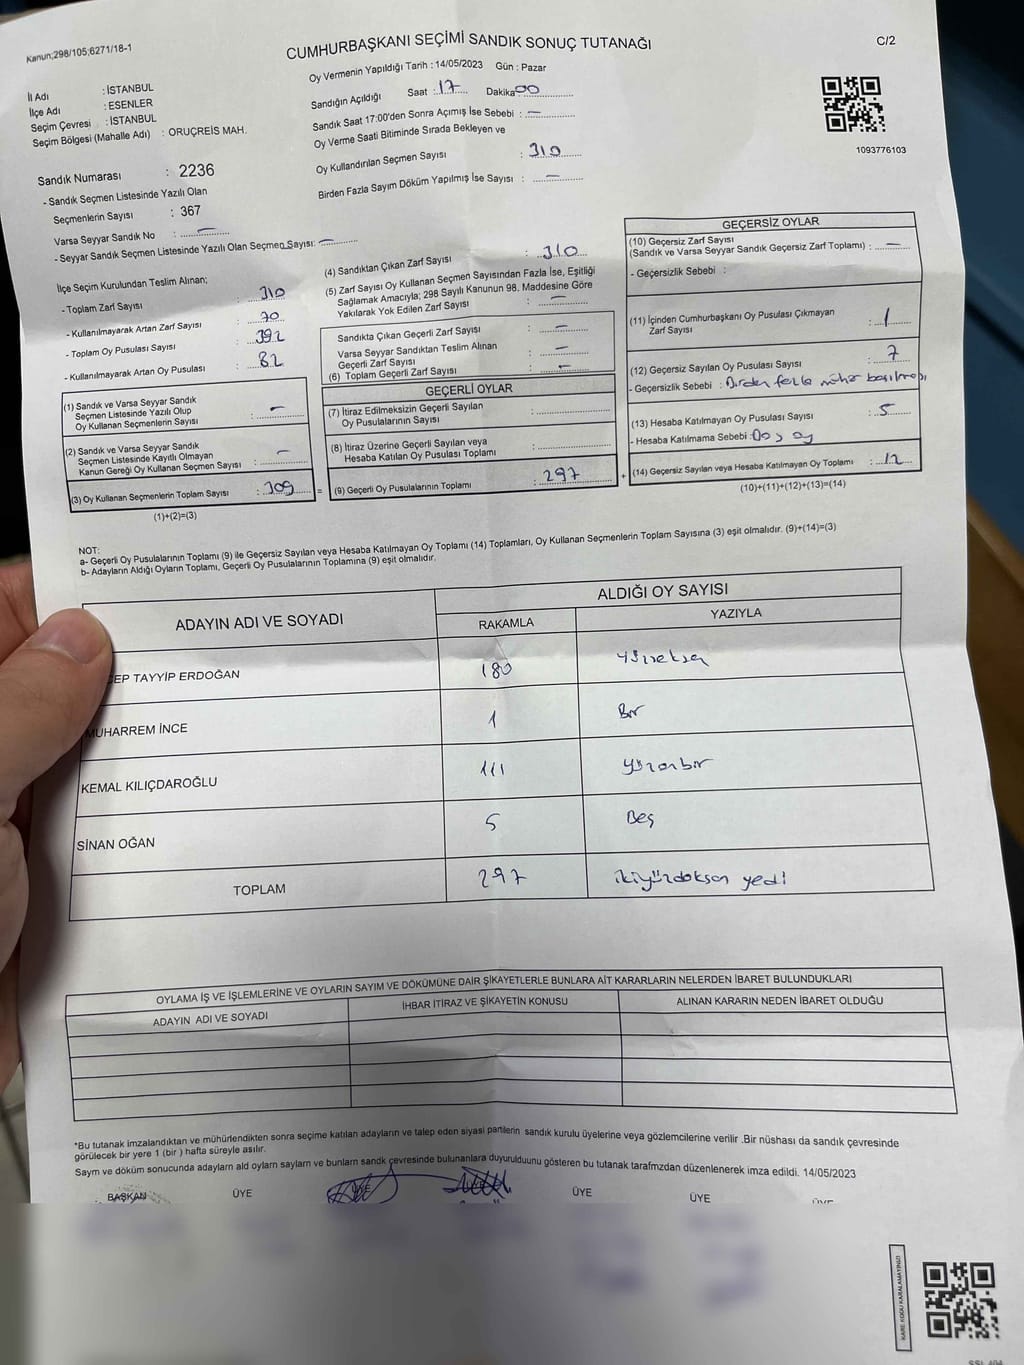 Kanun;298/105;6271/18-1
CUMHURBAŞKANI SEÇİMİ SANDIK SONUÇ TUTANAĞI
C/2
İl Adı : İSTANBUL
İlçe Adı : ESENLER
Seçim Çevresi : İSTANBUL
Seçim Bölgesi (Mahalle Adı) : ORUÇREİS MAH.
Sandık Numarası : 2236
- Sandık Seçmen Listesinde Yazılı Olan
Seçmenlerin Sayısı : 367
Varsa Seyyar Sandık No : —
- Seyyar Sandık Seçmen Listesinde Yazılı Olan Seçmen Sayısı: —
Oy Vermenin Yapıldığı Tarih : 14/05/2023 Gün : Pazar
Sandığın Açıldığı Saat : 17 Dakika 00
Sandık Saat 17:00'den Sonra Açımış İse Sebebi : —
Oy Verme Saati Bitiminde Sırada Bekleyen ve
Oy Kullandırılan Seçmen Sayısı : 310
Birden Fazla Sayım Döküm Yapılmış İse Sayısı : —
1093776103
İlçe Seçim Kurulundan Teslim Alınan;
- Toplam Zarf Sayısı : 310
- Kullanılmayarak Artan Zarf Sayısı : 70
- Toplam Oy Pusulası Sayısı : 392
- Kullanılmayarak Artan Oy Pusulası : 82
(1) Sandık ve Varsa Seyyar Sandık
Seçmen Listesinde Yazılı Olup
Oy Kullanan Seçmenlerin Sayısı : —
(2) Sandık ve Varsa Seyyar Sandık
Seçmen Listesinde Kayıtlı Olmayan
Kanun Gereği Oy Kullanan Seçmen Sayısı : —
(3) Oy Kullanan Seçmenlerin Toplam Sayısı : 309 =
(1)+(2)=(3)
(4) Sandıktan Çıkan Zarf Sayısı : 310
(5) Zarf Sayısı Oy Kullanan Seçmen Sayısından Fazla İse, Eşitliği
Sağlamak Amacıyla; 298 Sayılı Kanunun 98. Maddesine Göre
Yakılarak Yok Edilen Zarf Sayısı : —
Sandıkta Çıkan Geçerli Zarf Sayısı : —
Varsa Seyyar Sandıktan Teslim Alınan
Geçerli Zarf Sayısı : —
(6) Toplam Geçerli Zarf Sayısı : —
GEÇERLİ OYLAR
(7) İtiraz Edilmeksizin Geçerli Sayılan
Oy Pusulalarının Sayısı :
(8) İtiraz Üzerine Geçerli Sayılan veya
Hesaba Katılan Oy Pusulası Toplamı :
(9) Geçerli Oy Pusulalarının Toplamı : 297 +
GEÇERSİZ OYLAR
(10) Geçersiz Zarf Sayısı
(Sandık ve Varsa Seyyar Sandık Geçersiz Zarf Toplamı) : —
- Geçersizlik Sebebi :
(11) İçinden Cumhurbaşkanı Oy Pusulası Çıkmayan
Zarf Sayısı : 1
(12) Geçersiz Sayılan Oy Pusulası Sayısı : 7
- Geçersizlik Sebebi : Birden fazla mühür basılması
(13) Hesaba Katılmayan Oy Pusulası Sayısı : 5
- Hesaba Katılmama Sebebi : Boş oy
(14) Geçersiz Sayılan veya Hesaba Katılmayan Oy Toplamı : 12
(10)+(11)+(12)+(13)=(14)
NOT:
a- Geçerli Oy Pusulalarının Toplamı (9) ile Geçersiz Sayılan veya Hesaba Katılmayan Oy Toplamı (14) Toplamları, Oy Kullanan Seçmenlerin Toplam Sayısına (3) eşit olmalıdır. (9)+(14)=(3)
b- Adayların Aldığı Oyların Toplamı, Geçerli Oy Pusulalarının Toplamına (9) eşit olmalıdır.
ADAYIN ADI VE SOYADI ALDIĞI OY SAYISI
RAKAMLA YAZIYLA
EP TAYYİP ERDOĞAN 180 Yüzseksen
MUHARREM İNCE 1 Bir
KEMAL KILIÇDAROĞLU 111 Yüzonbir
SİNAN OĞAN 5 Beş
TOPLAM 297 ikiyüzdoksan yedi
OYLAMA İŞ VE İŞLEMLERİNE VE OYLARIN SAYIM VE DÖKÜMÜNE DAİR ŞİKAYETLERLE BUNLARA AİT KARARLARIN NELERDEN İBARET BULUNDUKLARI
ADAYIN ADI VE SOYADI İHBAR İTİRAZ VE ŞİKAYETİN KONUSU ALINAN KARARIN NEDEN İBARET OLDUĞU
*Bu tutanak imzalandıktan ve mühürlendikten sonra seçime katılan adayların ve talep eden siyasi partilerin sandık kurulu üyelerine veya gözlemcilerine verilir .Bir nüshası da sandık çevresinde
görülecek bir yere 1 (bir ) hafta süreyle asılır.
Sayım ve döküm sonucunda adayların ald oyların sayların ve bunların sandk çevresinde bulunanlara duyurulduunu gösteren bu tutanak tarafmzdan düzenlenerek imza edildi. 14/05/2023
BAŞKAN ÜYE ÜYE ÜYE ÜYE ÜYE
KARE KODU KARALAMAYINIZ!